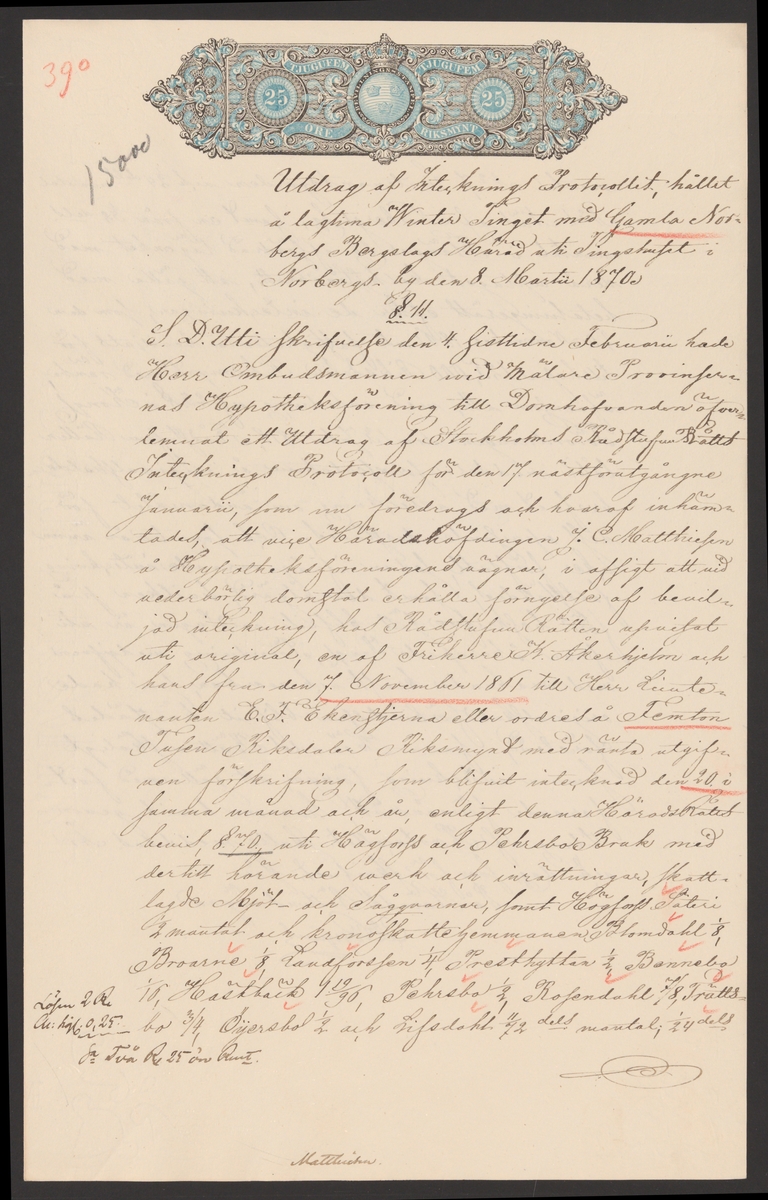 39⁰
15000
TJUGUFEM TJUGUFEM
25 25
ÖRE RIKSMYNT
Utdrag af Intecknings Protocollet, hållet
å lagtima Winter Tinget med Gamla Nor-
bergs Bergslags Härad uti Tingshuset i
Norbergs by den 8. Martii 1870.
§. 11.
S. D. Uti skrifvelse den 4. sistlidne Februarii hade
Herr Ombudsmannen wid Mälare Provinser-
nas Hypotheksförening till Domhafvanden öfver-
lemnat ett Utdrag af Stockholms Rådstufvu Rätts
Intecknings Protocoll för den 17 nästförutgångne
Januarii, som nu föredrogs och hvaraf inhäm-
tades, att vice Häradshöfdingen J. C. Matthiesen
å Hypotheksföreningens vägnar, i afsigt att vid
vederbörlig domstol erhålla förnyelse af bevil-
jad inteckning, hos Rådstufvu Rätten upvisat
uti original, en af Friherre K. Åkerhjelm och
hans fru den 7. November 1861 till Herr Lieute-
nanten E. F. Ekenstjerna eller ordres å Femton
Tusen Riksdaler Riksmynt med ränta utgif-
ven förskrifning, som blifvit intecknad den 20 i
samma månad och år, enligt denna Härads Rätts
bevis, § 70. uti Högforss och Pehrsbo Bruk med
dertill hörande werk och inrättningar, skatt-
lagde Mjöl- och Sågqvarnar, samt Högforss Säteri
1/2 mantal och kronoskattehemmanen Blomdahl 1/8,
Broarne 1/8, Landforssen 1/4, Presthyttan 1/2, Bennebo
1/16, Hästbäck 1 19/96, Pehrsbo 1/2, Rosendahl 7/8, Trätts-
bo 3/4, Öjersbol 1/2 och Lifsdahl 11/72 dels mantal; 1/24 dels
Lösen 2 R
0,25.
Sa Två R 25 öre Rmt.
Matthiesen